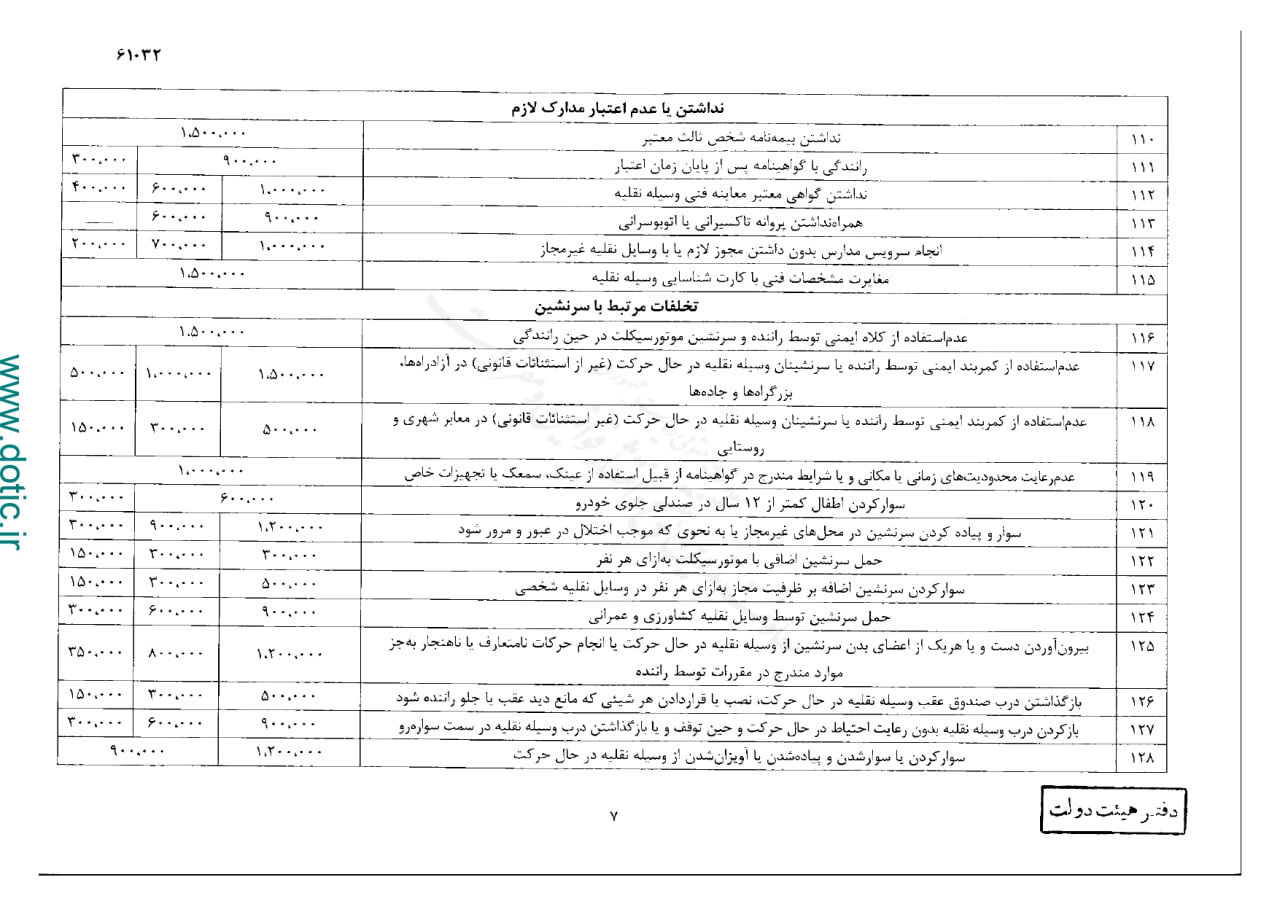 ۶۱۰۳۲
نداشتن یا عدم اعتبار مدارک لازم
۱۱۰ نداشتن بیمه‌نامه شخص ثالث معتبر ۱،۵۰۰،۰۰۰
۱۱۱ رانندگی با گواهینامه پس از پایان زمان اعتبار ۹۰۰،۰۰۰ ۳۰۰،۰۰۰
۱۱۲ نداشتن گواهی معتبر معاینه فنی وسیله نقلیه ۱،۰۰۰،۰۰۰ ۶۰۰،۰۰۰ ۴۰۰،۰۰۰
۱۱۳ همراه‌نداشتن پروانه تاکسیرانی یا اتوبوسرانی ۹۰۰،۰۰۰ ۶۰۰،۰۰۰ ــــ
۱۱۴ انجام سرویس مدارس بدون داشتن مجوز لازم یا با وسایل نقلیه غیرمجاز ۱،۰۰۰،۰۰۰ ۷۰۰،۰۰۰ ۲۰۰،۰۰۰
۱۱۵ مغایرت مشخصات فنی با کارت شناسایی وسیله نقلیه ۱،۵۰۰،۰۰۰
تخلفات مرتبط با سرنشین
۱۱۶ عدم‌استفاده از کلاه ایمنی توسط راننده و سرنشین موتورسیکلت در حین رانندگی ۱،۵۰۰،۰۰۰
۱۱۷ عدم‌استفاده از کمربند ایمنی توسط راننده یا سرنشینان وسیله نقلیه در حال حرکت (غیر از استثنائات قانونی) در آزادراه‌ها، ۱،۵۰۰،۰۰۰ ۱،۰۰۰،۰۰۰ ۵۰۰،۰۰۰
بزرگراه‌ها و جاده‌ها
۱۱۸ عدم‌استفاده از کمربند ایمنی توسط راننده یا سرنشینان وسیله نقلیه در حال حرکت (غیر استثنائات قانونی) در معابر شهری و ۵۰۰،۰۰۰ ۳۰۰،۰۰۰ ۱۵۰،۰۰۰
روستایی
۱۱۹ عدم‌رعایت محدودیت‌های زمانی یا مکانی و یا شرایط مندرج در گواهینامه از قبیل استفاده از عینک، سمعک یا تجهیزات خاص ۱،۰۰۰،۰۰۰
۱۲۰ سوارکردن اطفال کمتر از ۱۲ سال در صندلی جلوی خودرو ۶۰۰،۰۰۰ ۳۰۰،۰۰۰
۱۲۱ سوار و پیاده کردن سرنشین در محل‌های غیرمجاز یا به نحوی که موجب اختلال در عبور و مرور شود ۱،۲۰۰،۰۰۰ ۹۰۰،۰۰۰ ۳۰۰،۰۰۰
۱۲۲ حمل سرنشین اضافی با موتورسیکلت به‌ازای هر نفر ۳۰۰،۰۰۰ ۳۰۰،۰۰۰ ۱۵۰،۰۰۰
۱۲۳ سوارکردن سرنشین اضافه بر ظرفیت مجاز به‌ازای هر نفر در وسایل نقلیه شخصی ۵۰۰،۰۰۰ ۳۰۰،۰۰۰ ۱۵۰،۰۰۰
۱۲۴ حمل سرنشین توسط وسایل نقلیه کشاورزی و عمرانی ۹۰۰،۰۰۰ ۶۰۰،۰۰۰ ۳۰۰،۰۰۰
۱۲۵ بیرون‌آوردن دست و یا هریک از اعضای بدن سرنشین از وسیله نقلیه در حال حرکت یا انجام حرکات نامتعارف یا ناهنجار به‌جز ۱،۲۰۰،۰۰۰ ۸۰۰،۰۰۰ ۳۵۰،۰۰۰
موارد مندرج در مقررات توسط راننده
۱۲۶ بازگذاشتن درب صندوق عقب وسیله نقلیه در حال حرکت، نصب یا قراردادن هر شیئی که مانع دید عقب یا جلو راننده شود ۵۰۰،۰۰۰ ۳۰۰،۰۰۰ ۱۵۰،۰۰۰
۱۲۷ بازکردن درب وسیله نقلیه بدون رعایت احتیاط در حال حرکت و حین توقف و یا بازگذاشتن درب وسیله نقلیه در سمت سواره‌رو ۹۰۰،۰۰۰ ۶۰۰،۰۰۰ ۳۰۰،۰۰۰
۱۲۸ سوارکردن یا سوارشدن و پیاده‌شدن یا آویزان‌شدن از وسیله نقلیه در حال حرکت ۱،۲۰۰،۰۰۰ ۹۰۰،۰۰۰
۷
دفتر هیئت دولت
www.dotic.ir